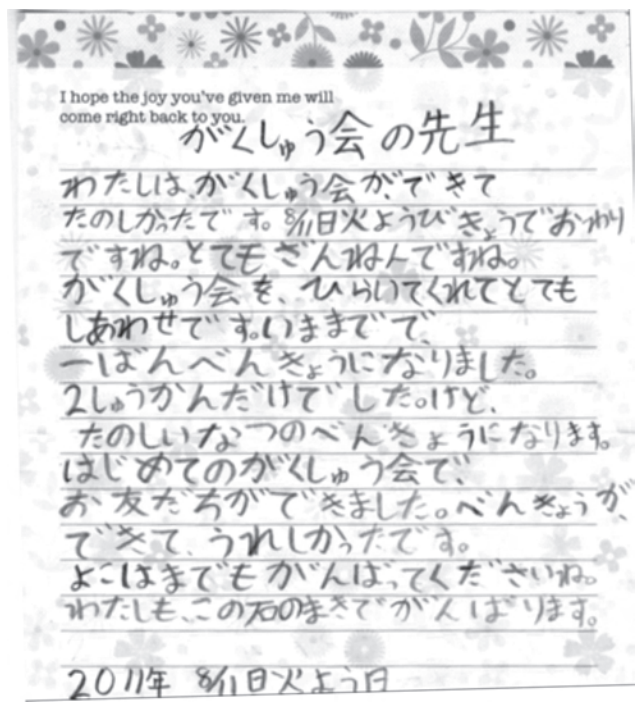 I hope the joy you've given me will
come right back to you.
がくしゅう会の先生
わたしは、がくしゅう会が、できて
たのしかったです。8/11日火ようびきょうでおわり
ですね。とてもざんねんですね。
がくしゅう会を、ひらいてくれてとても
しあわせです。いままでで、
一ばんべんきょうになりました。
2しゅうかんだけでした。けど、
たのしいなつのべんきょうになります。
はじめてのがくしゅう会で、
お友だちができました。べんきょうが、
できて、うれしかったです。
よこはまでもがんばってくださいね。
わたしも、この石のまきでがんばります。
2011年 8/11日火よう日